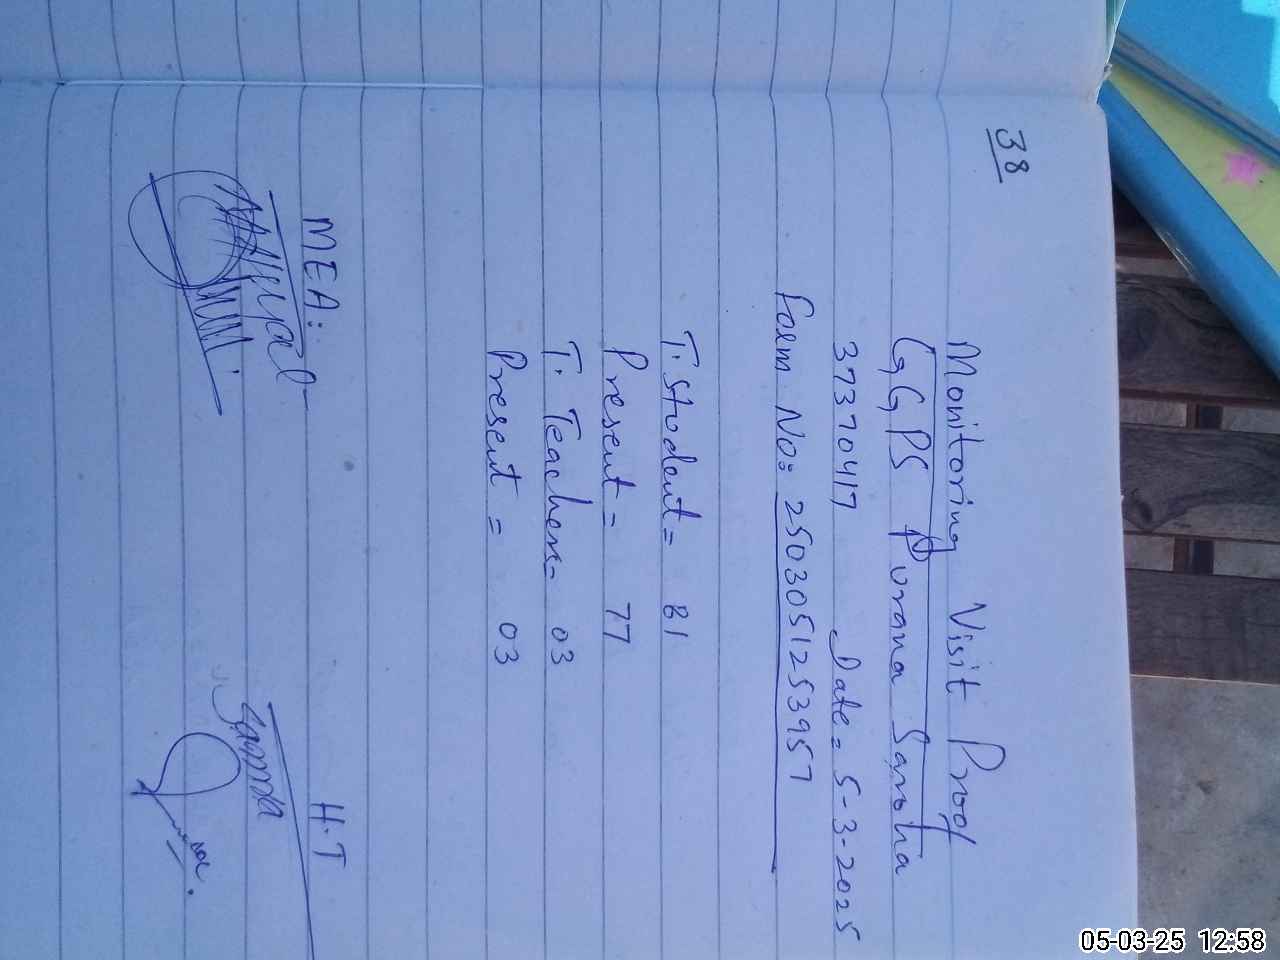 38
Monitoring Visit Proof
GGPS Purana Sarotia
37370417 Date = 5-3-2025
Form No: 2503051253957
T. Student = 81
Present = 77
T. Teachers = 03
Present = 03
MEA: H.T
05-03-25 12:58